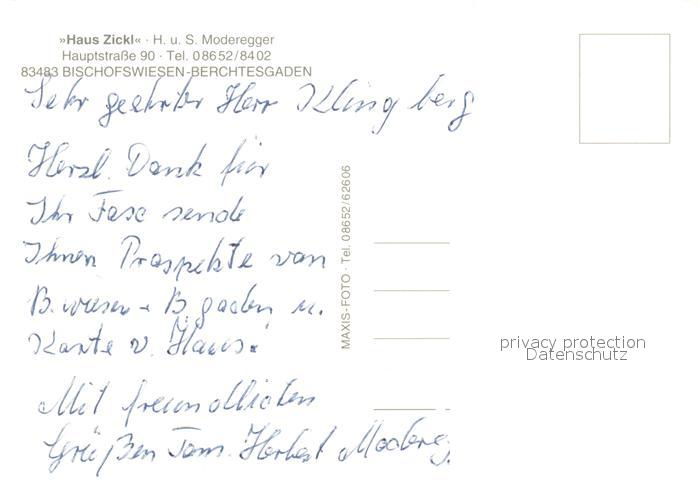 »Haus Zickl« · H. u. S. Moderegger
Hauptstraße 90 · Tel. 08652/8402
83483 BISCHOFSWIESEN-BERCHTESGADEN
Sehr geehrter Herr Klingberg
Herzl. Dank für
Ihr Fasc sende
Ihnen Prospekte von
B.wiesen - B.gaden u.
Karte v. Haus.
Mit freundlichen
Grüßen Fam. Herbert Mod
MAXIS-FOTO · Tel. 08652/62606
privacy protection
Datenschutz